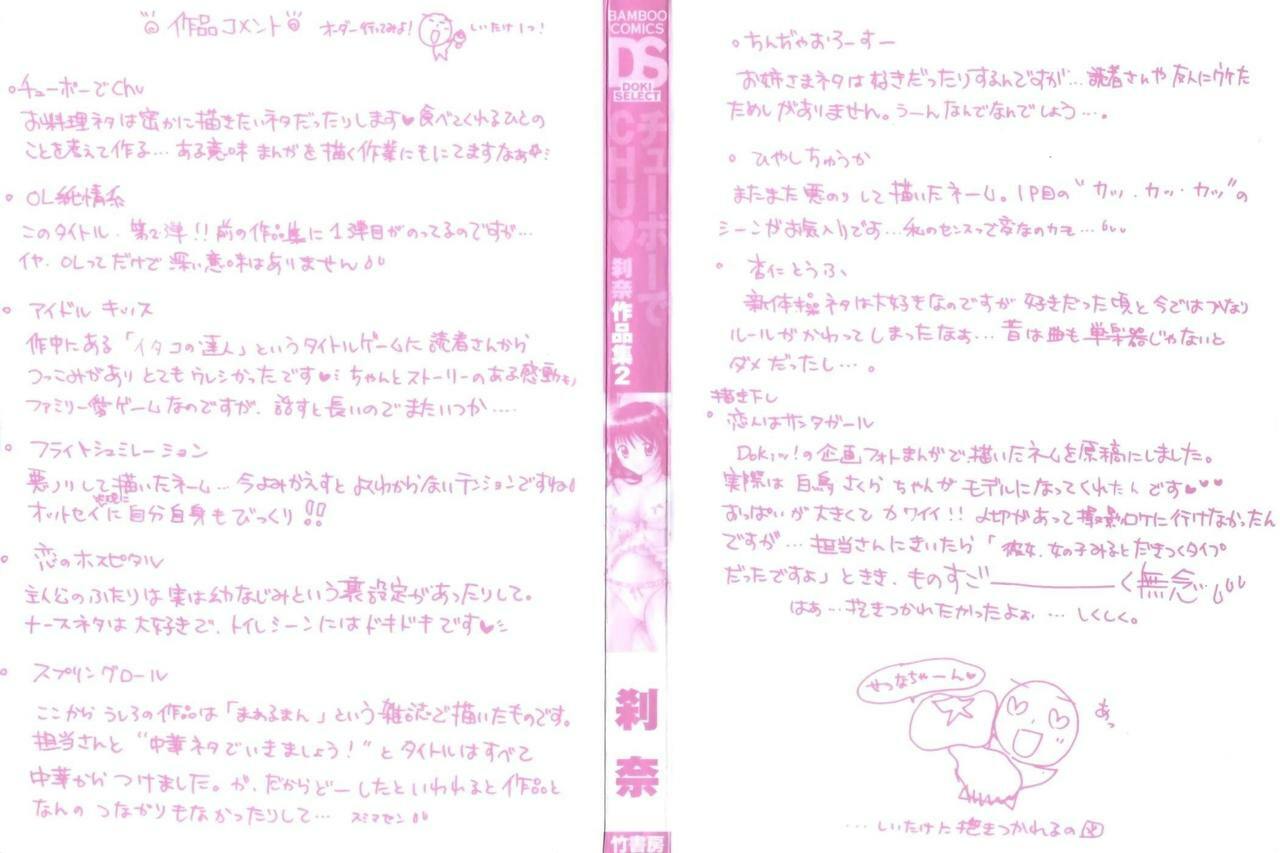 作品コメント
オーダー行ってみよ！
しいたけ1つ！
・チューボーでChu
お料理ネタは密かに描きたいネタだったりします♥食べてくれるひとの
ことを考えて作る…ある意味 まんがを描く作業にもにてますなぁ
・OL純情系
このタイトル、第2弾!!前の作品集に1弾目がのってるのですが…
イヤ、OLってだけで深い意味はありません
・アイドル キッス
作中にある「イタコの達人」というタイトルゲームに読者さんから
つっこみがありとてもウレシかったです♥ちゃんとストーリーのある感動も
ファミリー愛ゲームなのですが、話すと長いのでまたいつか…‥
・フライトシュミレーション
悪ノリして描いたネーム…今よみかえすとよくわからないテンションですね
オットセイに自分自身もびっくり!!
・恋のホスピタル
主人公のふたりは実は幼なじみという裏設定があったりして。
ナースネタは大好きで、トイレシーンにはドキドキです♥
・スプリングロール
ここからうしろの作品は「まぁるまん」という雑誌で描いたものです。
担当さんと"中華ネタでいきましょう！"とタイトルはすべて
中華からつけました。が、だからどーしたといわれると作品と
なんのつながりもなかったりして… スミマセン
BAMBOO
COMICS
DS
DOKI
SELECT
チューボーで
CHU♥
刹奈作品集2
刹奈
竹書房
・ちんぢゃおろーすー
お姉さまネタは好きだったりするんですが…読者さんや友人にウケた
ためしがありません。うーんなんでなんでしょう…。
・ひやしちゅうか
またまた悪のりして描いたネーム。1P目の"カッ・カッ・カッ"の
シーンがお気入りです…私のセンスって変なのカモ…
・杏仁とうふ
新体操ネタは大好きなのですが好きだった頃と今ではかなり
ルールがかわってしまったなぁ…昔は曲も単楽器じゃないと
ダメだったし…。
描き下し
・恋人はサンタガール
Dokiッ！の企画フォトまんがで、描いたネームを原稿にしました。
実際は白鳥さくらちゃんがモデルになってくれたんです♥♥♥
おっぱいが大きくてカワイイ!!〆切があって撮影ロケに行けなかったん
ですが…担当さんにきいたら「彼女、女の子みるとだきつくタイプ
だったですよ」ときき、ものすご――――く無念…
はぁ…抱きつかれたかったよぉ…しくしく。
せつなちゃーん♥
あっ
…しいたけに抱きつかれるの図